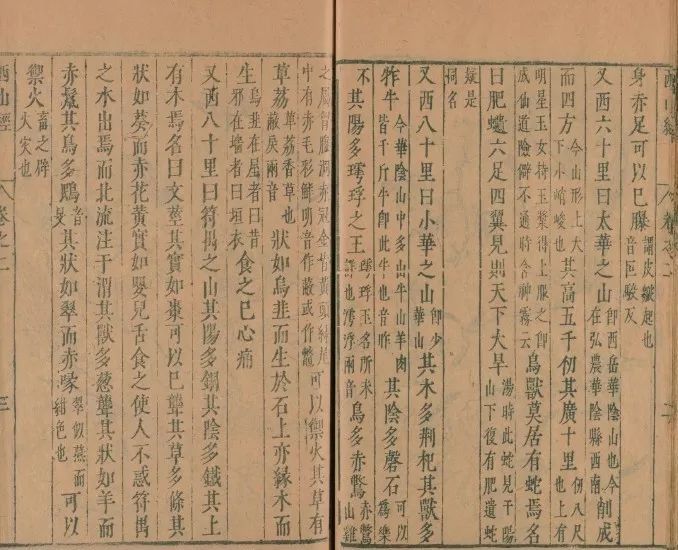 西山經 卷之二
身赤足可以已𦢊 謂皮皴起也音叵駮反
又西六十里曰太華之山 即西岳華陰山也今在弘農華陰縣西南 削成
而四方 今山形上大下小峭峻也 其高五千仞其廣十里 仞八尺也上有
明星玉女持玉漿得上服之即成仙道險僻不通詩含神霧云 鳥獸莫居有蛇焉名
曰肥𧔥六足四翼見則天下大旱 湯時此蛇見于陽山下復有肥遺蛇
疑是同名
又西八十里曰小華之山 即少華山 其木多荆杞其獸多
㸲牛 今華陰山中多山牛山羊肉皆千斤牛即此牛也音昨 其陰多磬石 可以為樂
不其陽多㻬琈之玉 㻬琈玉名所未詳也㻬浮兩音 鳥多赤鷩 赤鷩山雞
之屬胷腹洞赤冠金背黃頭綠尾中有赤毛彩鮮明音作蔽或作鱉 可以禦火其草有
草荔 草荔香草也蔽戾兩音 狀如烏韭而生於石上亦緣木而
生 烏韭在屋者曰昔邪在墻者曰垣衣 食之已心痛
又西八十里曰符禺之山其陽多銅其陰多鐵其上
有木焉名曰文莖其實如棗可以已聾其草多條其
狀如葵而赤花黃實如嬰兒舌食之使人不惑符禺
之水出焉而北流注于渭其獸多葱聾其狀如羊而
赤鬣其鳥多鴖 音旻 其狀如翠而赤喙 翠似燕而紺色也 可以
禦火 畜之辟火災也
西山經 卷之二 三